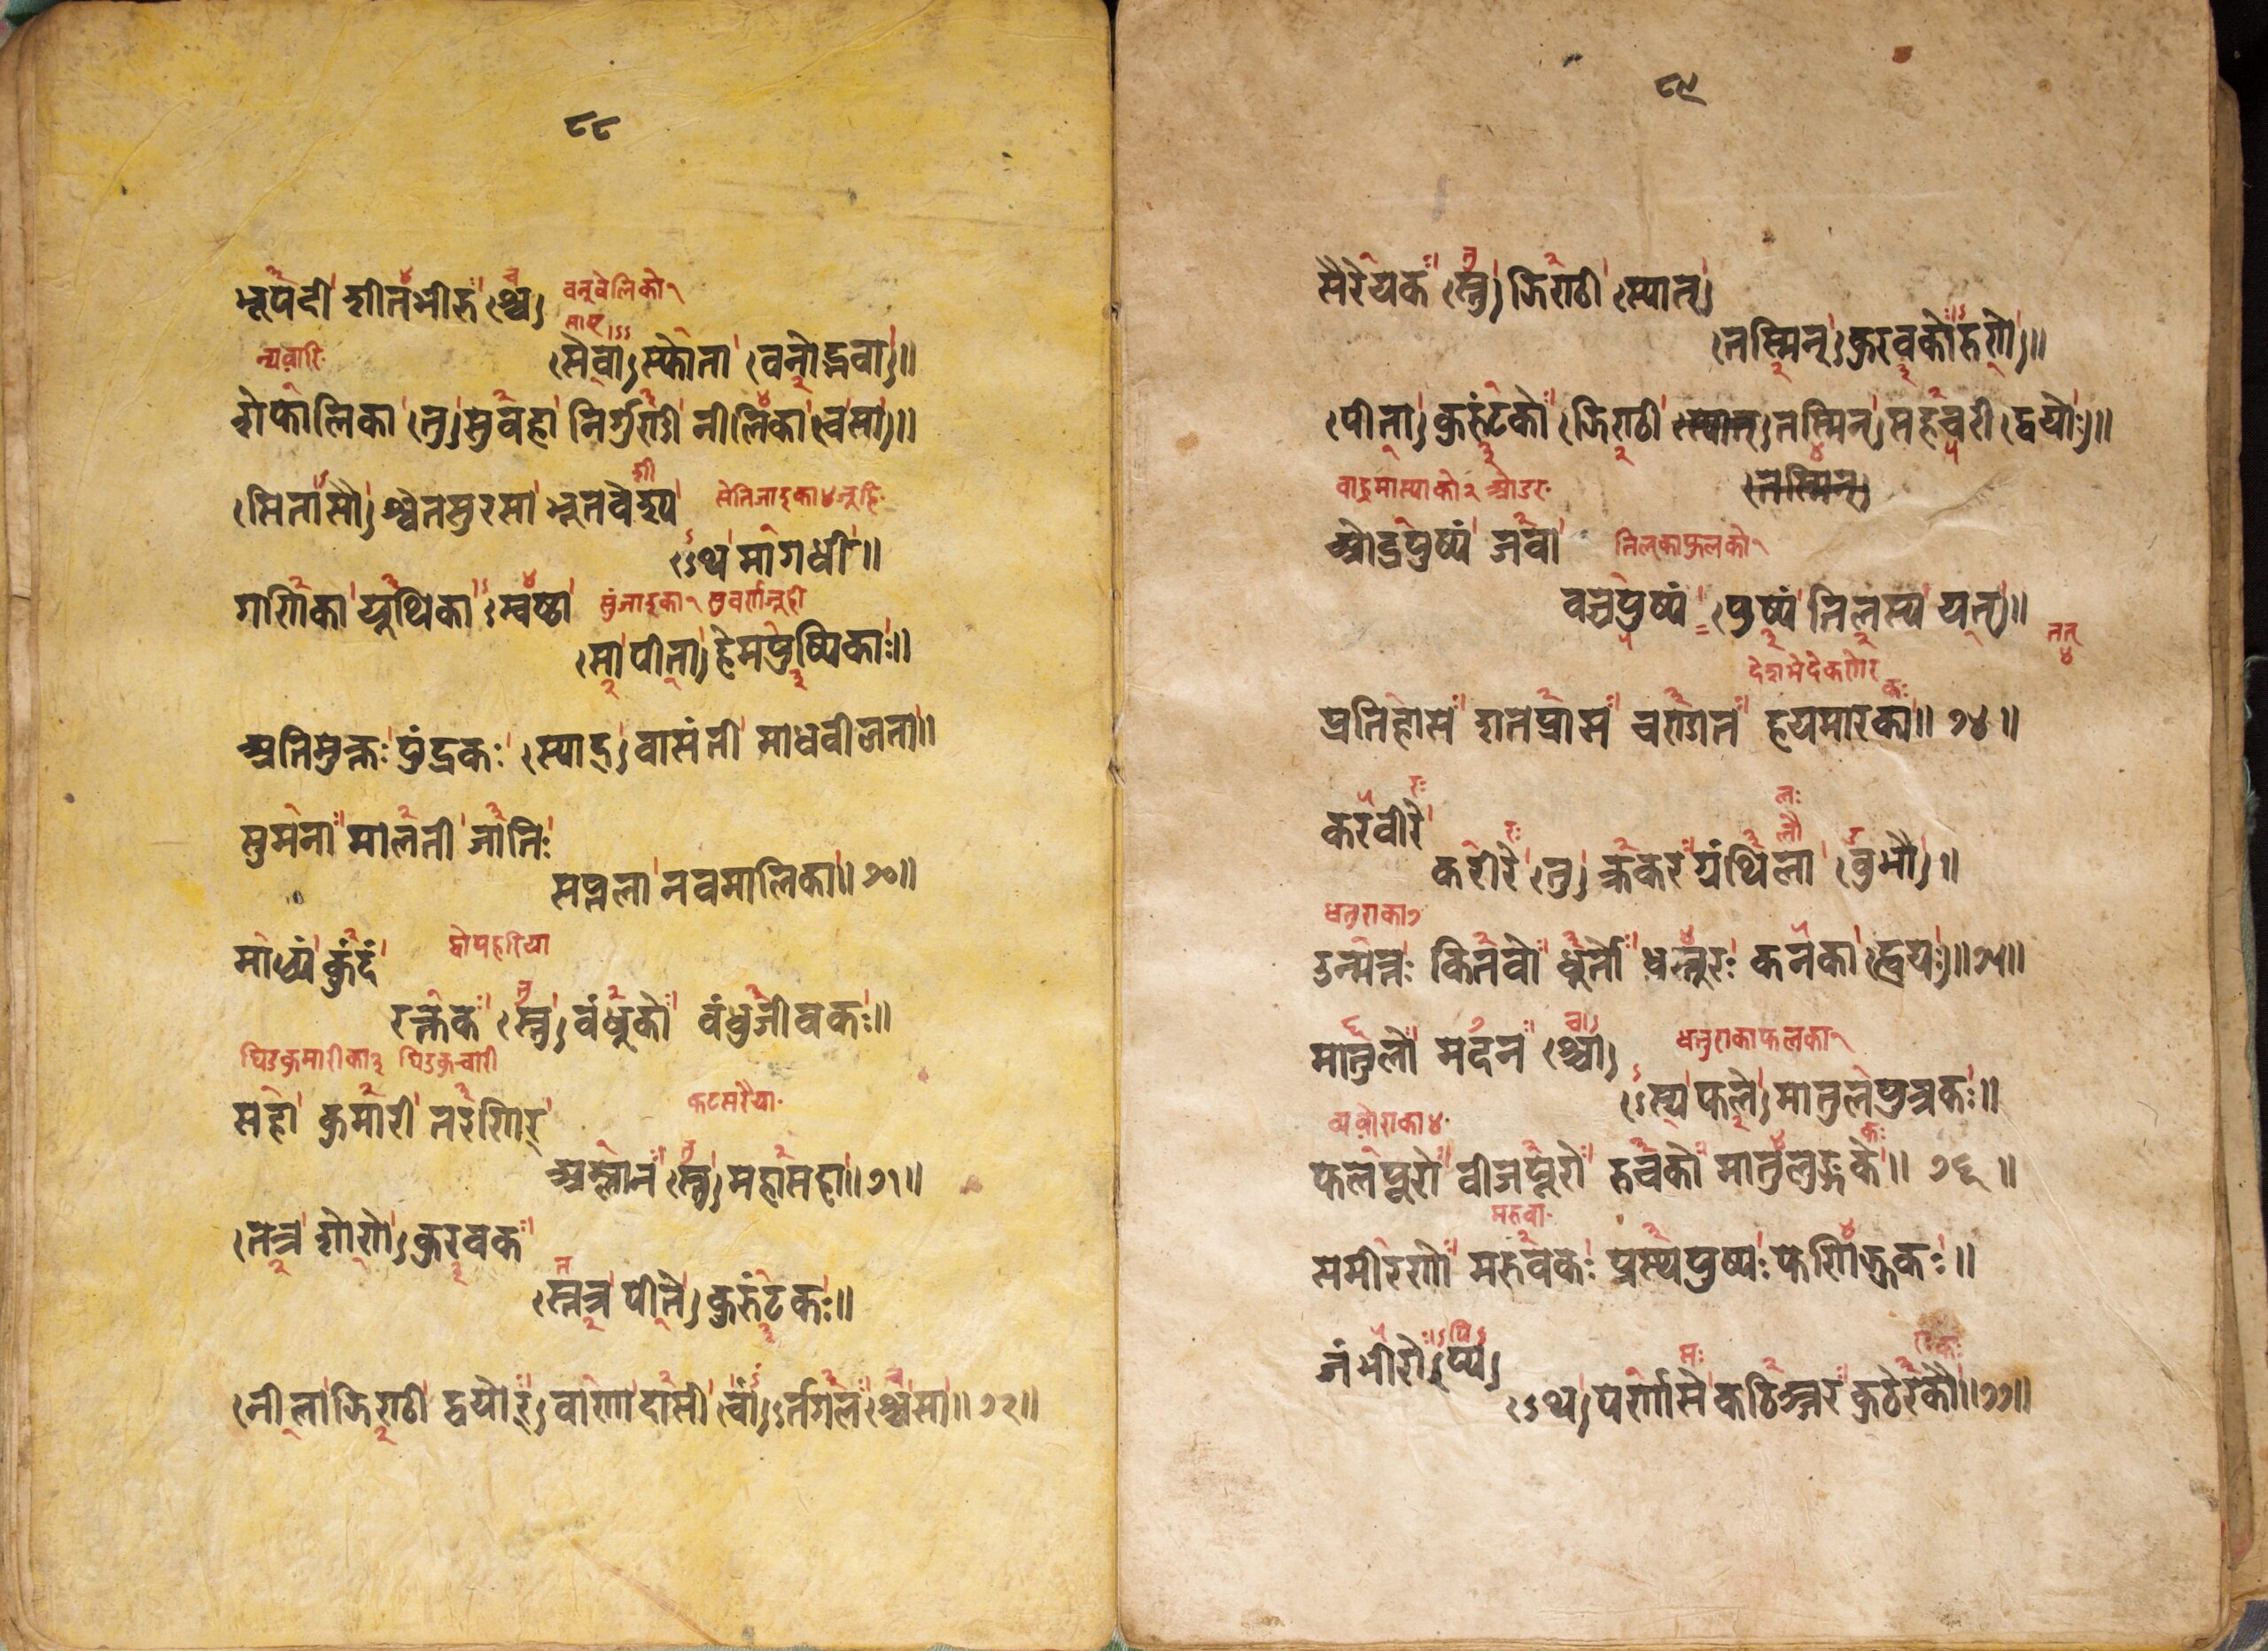 ८८
भूपदी शीतभीरु श्च
वनवेलिको१
सैवा स्फोता वनोद्भवा ॥
शेफालिका तु सुवहा निर्गुण्डी नीलिका च सा ॥
सितासौ श्वेतसुरसा भूतवेश्य
ऽथ मागधी ॥
गणिका यूथिका ऽम्बष्ठा
सा पीता हेमपुष्पिका ॥
अतिमुक्तः पुंद्रकः स्याद् वासंती माधवीलता ॥
सुमना मालती जातिः
सप्तला नवमालिका ॥ ७० ॥
माध्यं कुंदं
रक्तक स्तु वंधूको वंधुजीवकः ॥
घिउकुमारीका३
सहा कुमारी तरणिर्
कटसरैया
अम्लान स्तु महासहा ॥ ७१ ॥
तत्र शोणे कुरवक
स्तत्र पीते कुरुंटकः ॥
नीला झिण्टी द्वयोर् वाणा दासी चा ऽर्तगल श्च सा ॥ ७२ ॥
८९
सैरेयक स्तु झिण्टी स्यात्
तस्मिन् कुरवको रुणे ॥
पीता कुरुंटको झिण्टी स्यात् तस्मिन् सहचरी द्वयोः ॥
तस्मिन्
ओड्रपुष्पं जवा
तिलकाफूलको१
वज्रपुष्पं पुष्पं तिलस्य यत् ॥
तत् ४
प्रतिहास शतप्रास चण्डात हयमारका ॥ ७४ ॥
करवीरे
करीरे तु क्रकर ग्रंथिला वुभौ ॥
धतुराका७
उन्मत्तः कितवो धूर्तो धत्तूरः कनकाह्वयः ॥ ७५ ॥
मातुलो मदन श्चा
धतुराकाफलका१
ऽस्य फले मातुलपुत्रकः ॥
फलपूरो वीजपूरो रुचको मातुलुङ्गके ॥ ७६ ॥
मरुवा
समीरणो मरुवकः प्रस्थपुष्पः फणिज्जकः ॥
जंभीरो प्य
ऽथ पर्णासे कठिञ्जर कुठेरकौ ॥ ७७ ॥